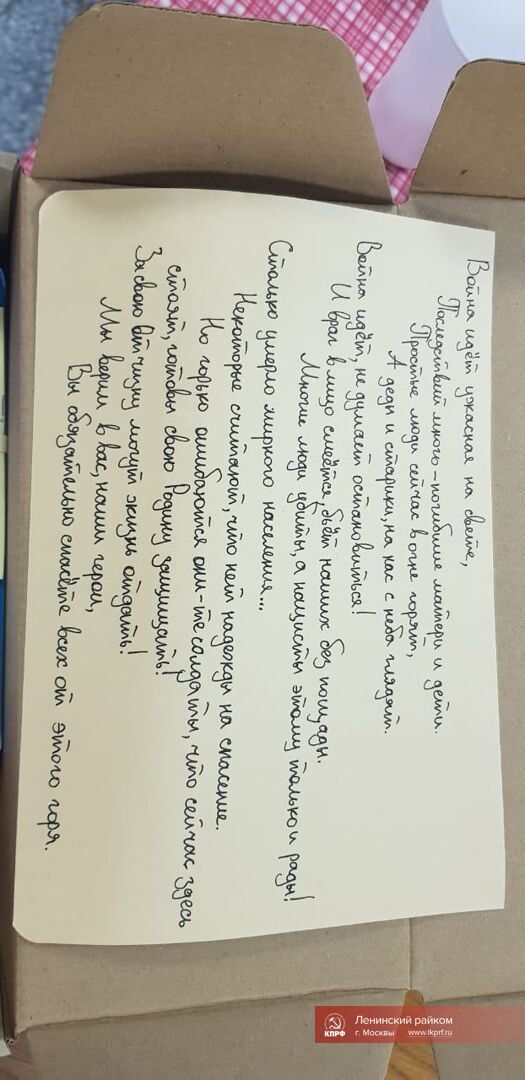 Война идёт ужасная на свете,
Последствий много – погибшие матери и дети.
Простые люди сейчас в огне горят,
А деды и старики, на нас с неба глядят.
Война идёт, не думает остановиться!
И враг в лицо смеётся, бьёт наших без пощады.
Многие люди убиты, а нацисты этому только и рады!
Столько умерло мирного населения...
Некоторые считают, что нет надежды на спасение.
Но горько ошибаются они – те солдаты, что сейчас здесь
стоят, готовы свою Родину защищать!
За свою отчизну могут жизнь отдать!
Мы верим в вас, наши герои,
Вы обязательно спасёте всех от этого горя.
КПРФ
Ленинский райком
г. Москвы www.lkprf.ru